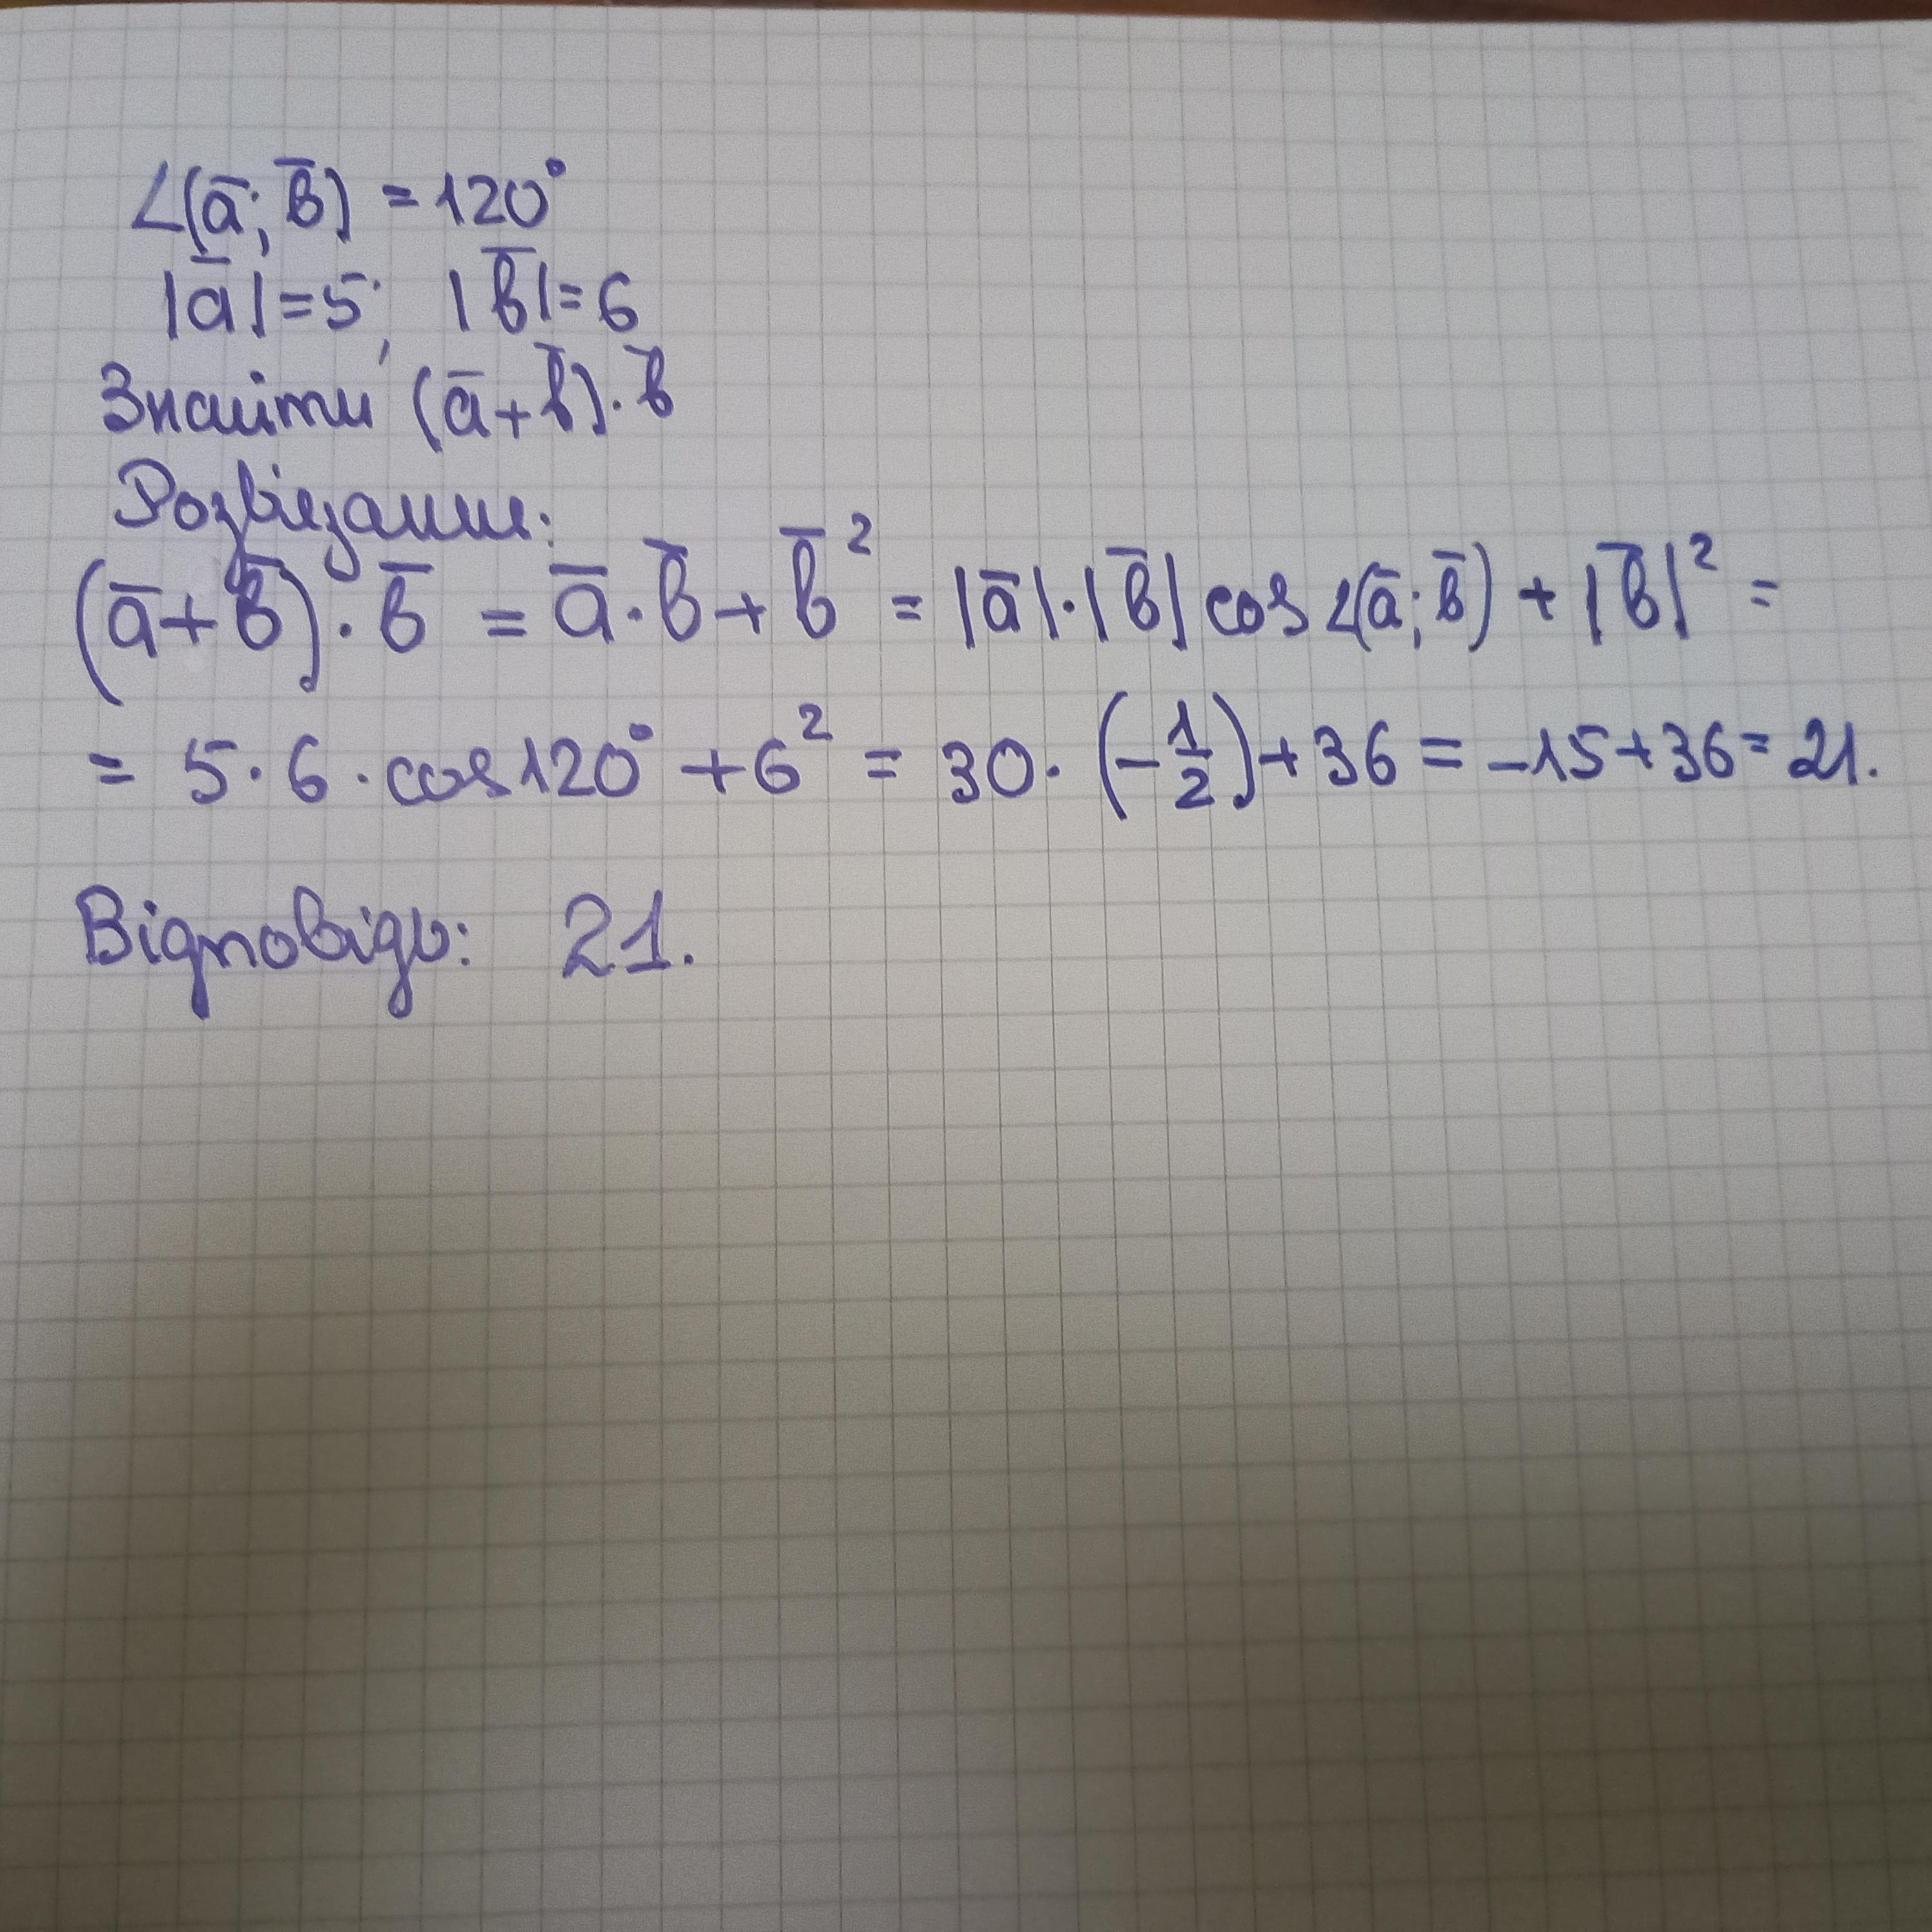 ∠(a̅; b̅) = 120°
|a̅| = 5; |b̅| = 6
Знайти (a̅ + b̅) · b̅
Розв'язання:
(a̅ + b̅) · b̅ = a̅ · b̅ + b̅² = |a̅| · |b̅| cos ∠(a̅; b̅) + |b̅|² =
= 5 · 6 · cos 120° + 6² = 30 · (-1/2) + 36 = -15 + 36 = 21.
Відповідь: 21.